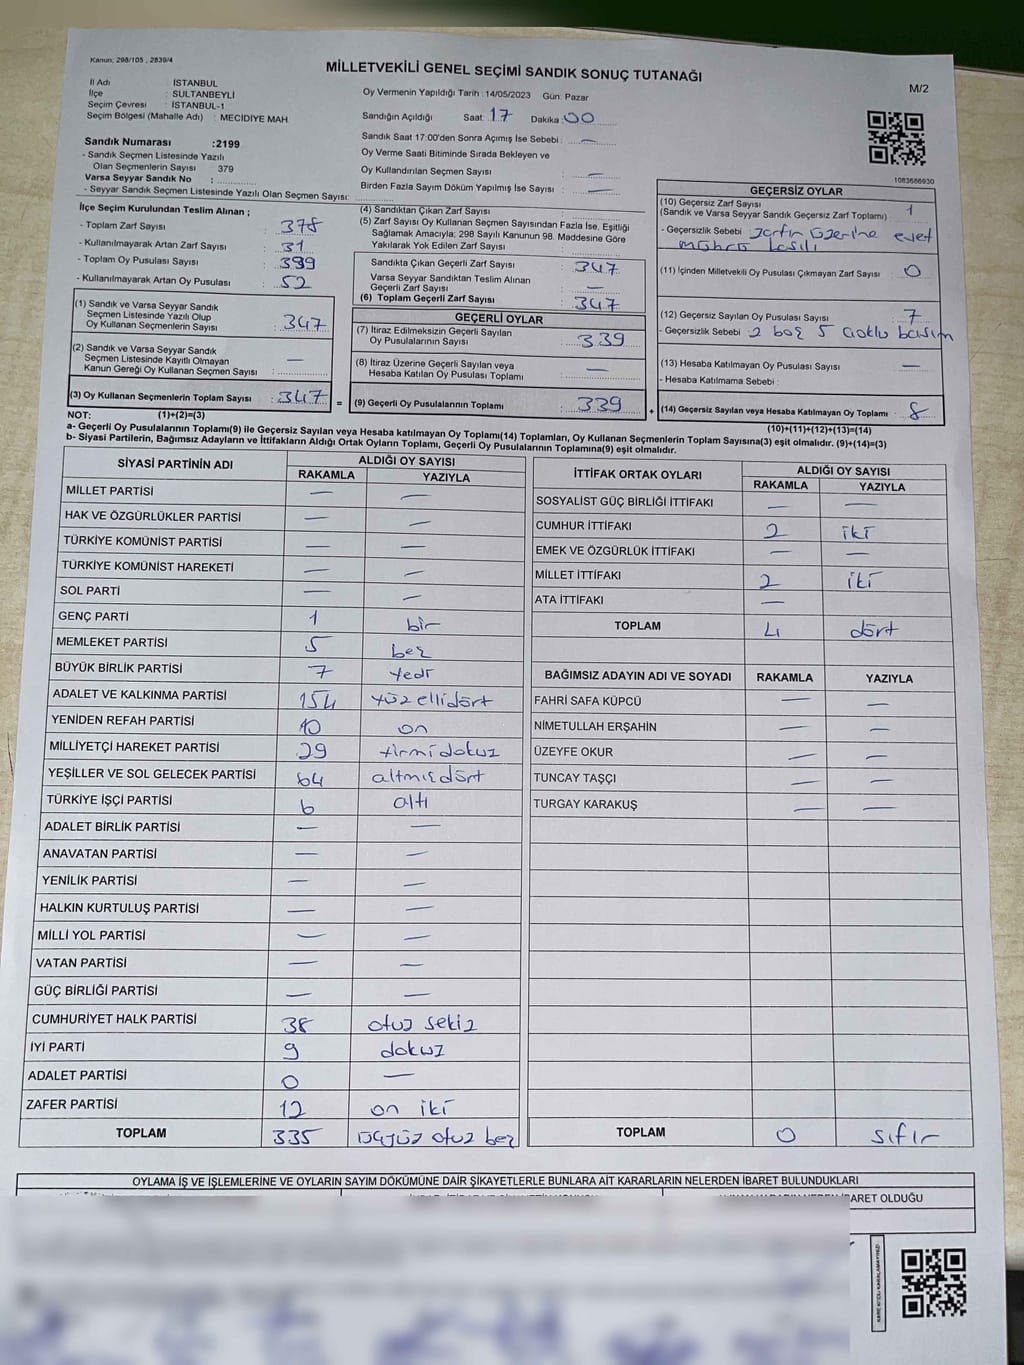 Kanun; 298/105 , 2839/4
MİLLETVEKİLİ GENEL SEÇİMİ SANDIK SONUÇ TUTANAĞI
M/2
İl Adı : İSTANBUL
İlçe : SULTANBEYLİ
Seçim Çevresi : İSTANBUL-1
Seçim Bölgesi (Mahalle Adı) : MECİDİYE MAH.
Oy Vermenin Yapıldığı Tarih :14/05/2023 Gün: Pazar
Sandığın Açıldığı Saat: 17 Dakika: 00
Sandık Saat 17:00'den Sonra Açımış İse Sebebi : —
Oy Verme Saati Bitiminde Sırada Bekleyen ve
Oy Kullandırılan Seçmen Sayısı : —
Birden Fazla Sayım Döküm Yapılmış İse Sayısı : —
Sandık Numarası :2199
- Sandık Seçmen Listesinde Yazılı
Olan Seçmenlerin Sayısı : 379
Varsa Seyyar Sandık No :
- Seyyar Sandık Seçmen Listesinde Yazılı Olan Seçmen Sayısı:
1083686930
İlçe Seçim Kurulundan Teslim Alınan ;
- Toplam Zarf Sayısı : 378
- Kullanılmayarak Artan Zarf Sayısı : 31
- Toplam Oy Pusulası Sayısı : 399
- Kullanılmayarak Artan Oy Pusulası : 52
(1) Sandık ve Varsa Seyyar Sandık
Seçmen Listesinde Yazılı Olup
Oy Kullanan Seçmenlerin Sayısı : 347
(2) Sandık ve Varsa Seyyar Sandık
Seçmen Listesinde Kayıtlı Olmayan
Kanun Gereği Oy Kullanan Seçmen Sayısı : —
(3) Oy Kullanan Seçmenlerin Toplam Sayısı : 347 =
(4) Sandıktan Çıkan Zarf Sayısı :
(5) Zarf Sayısı Oy Kullanan Seçmen Sayısından Fazla İse, Eşitliği
Sağlamak Amacıyla; 298 Sayılı Kanunun 98. Maddesine Göre
Yakılarak Yok Edilen Zarf Sayısı :
Sandıkta Çıkan Geçerli Zarf Sayısı : 347
Varsa Seyyar Sandıktan Teslim Alınan
Geçerli Zarf Sayısı : —
(6) Toplam Geçerli Zarf Sayısı : 347
GEÇERLİ OYLAR
(7) İtiraz Edilmeksizin Geçerli Sayılan
Oy Pusulalarının Sayısı : 339
(8) İtiraz Üzerine Geçerli Sayılan veya
Hesaba Katılan Oy Pusulası Toplamı : —
(9) Geçerli Oy Pusulalarının Toplamı : 339 +
GEÇERSİZ OYLAR
(10) Geçersiz Zarf Sayısı : 1
(Sandık ve Varsa Seyyar Sandık Geçersiz Zarf Toplamı)
- Geçersizlik Sebebi : zarfın üzerine evet
mührü basılı
(11) İçinden Milletvekili Oy Pusulası Çıkmayan Zarf Sayısı : 0
(12) Geçersiz Sayılan Oy Pusulası Sayısı : 7
- Geçersizlik Sebebi : 2 boş 5 çoklu basım
(13) Hesaba Katılmayan Oy Pusulası Sayısı : —
- Hesaba Katılmama Sebebi :
(14) Geçersiz Sayılan veya Hesaba Katılmayan Oy Toplamı : 8
NOT: (1)+(2)=(3) (10)+(11)+(12)+(13)=(14)
a- Geçerli Oy Pusulalarının Toplamı(9) ile Geçersiz Sayılan veya Hesaba katılmayan Oy Toplamı(14) Toplamları, Oy Kullanan Seçmenlerin Toplam Sayısına(3) eşit olmalıdır. (9)+(14)=(3)
b- Siyasi Partilerin, Bağımsız Adayların ve İttifakların Aldığı Ortak Oyların Toplamı, Geçerli Oy Pusulalarının Toplamına(9) eşit olmalıdır.
SİYASİ PARTİNİN ADI ALDIĞI OY SAYISI
RAKAMLA YAZIYLA
MİLLET PARTİSİ — —
HAK VE ÖZGÜRLÜKLER PARTİSİ — —
TÜRKİYE KOMÜNİST PARTİSİ — —
TÜRKİYE KOMÜNİST HAREKETİ — —
SOL PARTİ — —
GENÇ PARTİ 1 bir
MEMLEKET PARTİSİ 5 beş
BÜYÜK BİRLİK PARTİSİ 7 yedi
ADALET VE KALKINMA PARTİSİ 154 yüz ellidört
YENİDEN REFAH PARTİSİ 10 on
MİLLİYETÇİ HAREKET PARTİSİ 29 yirmidokuz
YEŞİLLER VE SOL GELECEK PARTİSİ 64 altmışdört
TÜRKİYE İŞÇİ PARTİSİ 6 altı
ADALET BİRLİK PARTİSİ — —
ANAVATAN PARTİSİ — —
YENİLİK PARTİSİ — —
HALKIN KURTULUŞ PARTİSİ — —
MİLLİ YOL PARTİSİ — —
VATAN PARTİSİ — —
GÜÇ BİRLİĞİ PARTİSİ — —
CUMHURİYET HALK PARTİSİ 38 otuz sekiz
İYİ PARTİ 9 dokuz
ADALET PARTİSİ 0 —
ZAFER PARTİSİ 12 on iki
TOPLAM 335 üçyüz otuz beş
İTTİFAK ORTAK OYLARI ALDIĞI OY SAYISI
RAKAMLA YAZIYLA
SOSYALİST GÜÇ BİRLİĞİ İTTİFAKI — —
CUMHUR İTTİFAKI 2 iki
EMEK VE ÖZGÜRLÜK İTTİFAKI — —
MİLLET İTTİFAKI 2 iki
ATA İTTİFAKI —
TOPLAM 4 dört
BAĞIMSIZ ADAYIN ADI VE SOYADI RAKAMLA YAZIYLA
FAHRİ SAFA KÜPCÜ — —
NİMETULLAH ERŞAHİN — —
ÜZEYFE OKUR — —
TUNCAY TAŞÇI — —
TURGAY KARAKUŞ — —
TOPLAM 0 sıfır
OYLAMA İŞ VE İŞLEMLERİNE VE OYLARIN SAYIM DÖKÜMÜNE DAİR ŞİKAYETLERLE BUNLARA AİT KARARLARIN NELERDEN İBARET BULUNDUKLARI
İBARET OLDUĞU